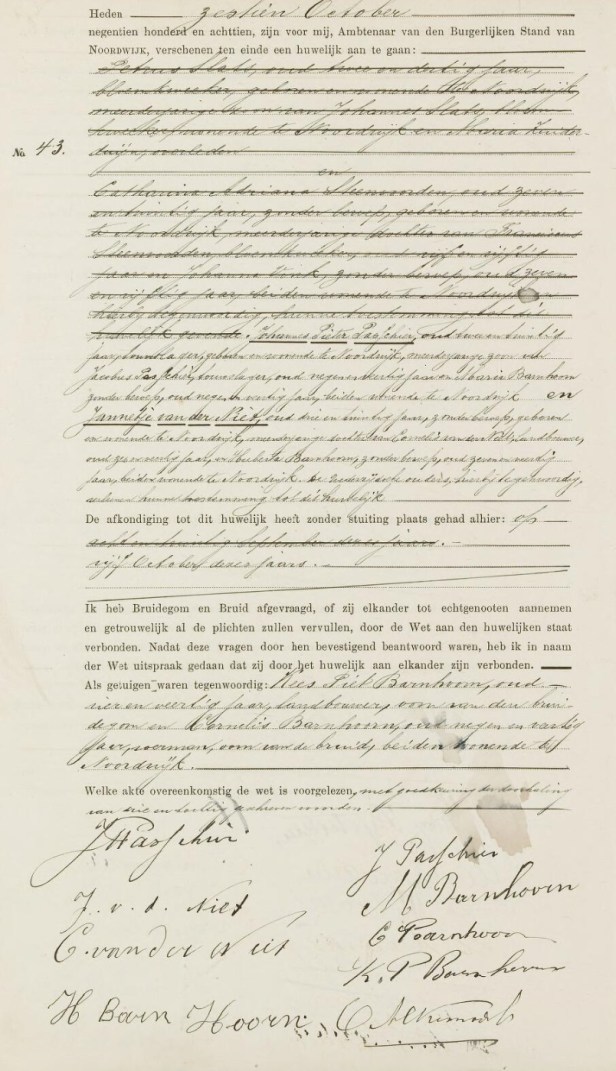 Heden zestien October
negentien honderd en achttien, zijn voor mij, Ambtenaar van den Burgerlijken Stand van
Noordwijk, verschenen ten einde een huwelijk aan te gaan:
Petrus Slats, oud twee en dertig jaar,
bloemkweeker, geboren en wonende te Noordwijk,
meerderjarige zoon van Johannes Slats, bloem
kweeker wonende te Noordwijk en Maria Zuider-
No. 43.
duijn, overleden
en
Catharina Adriana Steenvoorden, oud zeven
en twintig jaar, zonder beroep, geboren en wonende
te Noordwijk, meerderjarige dochter van Franciscus
Steenvoorden, bloemkweeker, oud vijf en vijftig
jaar en Johanna Vink, zonder beroep, oud zeven
en vijftig jaar, beiden wonende te Noordwijk en
hierbij tegenwoordig, hunne toestemming tot dit
huwelijk gevende. Johannes Pieter Passchier, oud twee en twintig
jaar, bouwslager, geboren en wonende te Noordwijk, meerderjarige zoon van
Jacobus Passchier, bouwslager, oud negen en veertig jaar en Maria Barnhoorn
zonder beroep, oud negen en veertig jaar, beiden wonende te Noordwijk en
Jannetje van der Niet, oud drie en twintig jaar, zonder beroep, geboren
en wonende te Noordwijk, meerderjarige dochter van Cornelis van der Niet, landbouwer,
oud zes en veertig jaar, en Huberta Barnhoorn, zonder beroep, oud zeven en veertig
jaar, beiden wonende te Noordwijk. De wederzijdsche ouders, hierbij tegenwoordig,
verleenen hunne toestemming tot dit huwelijk
De afkondiging tot dit huwelijk heeft zonder stuiting plaats gehad alhier: op
acht en twintig September dezes jaars.
vijf October dezes jaars.
Ik heb Bruidegom en Bruid afgevraagd, of zij elkander tot echtgenooten aannemen
en getrouwelijk al de plichten zullen vervullen, door de Wet aan den huwelijken staat
verbonden. Nadat deze vragen door hen bevestigend beantwoord waren, heb ik in naam
der Wet uitspraak gedaan dat zij door het huwelijk aan elkander zijn verbonden.
Als getuigen waren tegenwoordig: Kees Piet Barnhoorn, oud
vier en veertig jaar, landbouwer, oom van den brui
degom en Cornelis Barnhoorn, oud negen en veertig
jaar, voerman, oom van de bruid, beiden wonende te
Noordwijk.
Welke akte overeenkomstig de wet is voorgelezen, met goedkeuring der doorhaling
van drie en tachtig woorden.
J P Passchier
J Passchier
J. v. d. Niet
M Barnhoorn
C. van der Niet
C Barnhoorn
K. P Barnhoorn
H Barn Hoorn